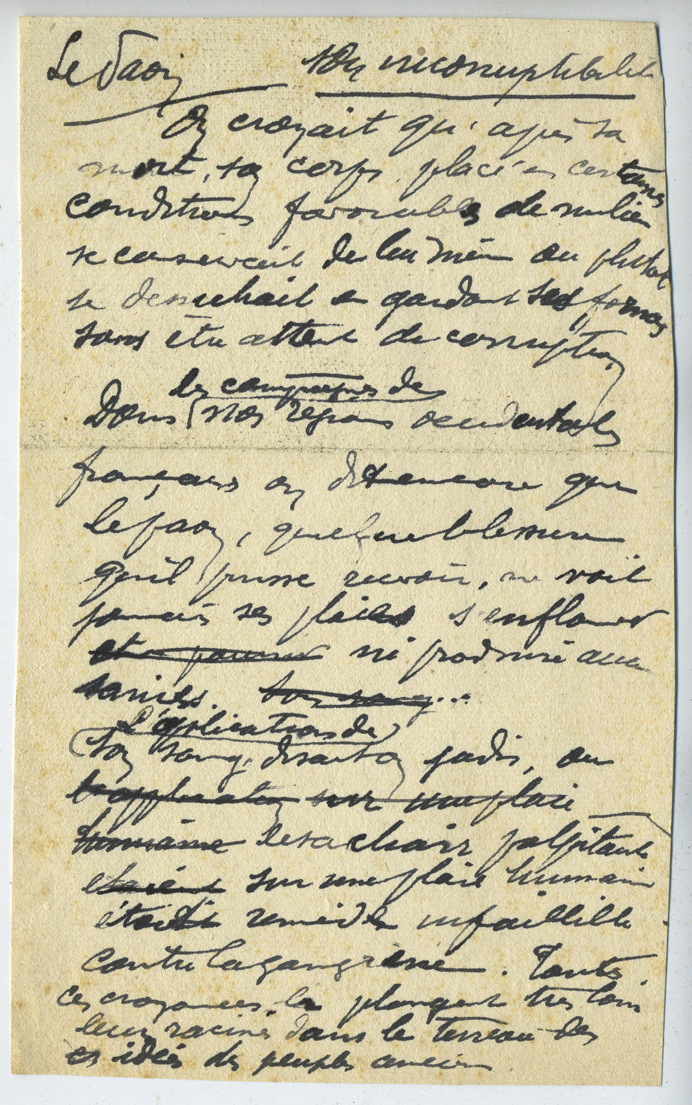 Le Paon son incorruptibilité
On croyait qu'après sa
mort, son corps, placé en certaines
conditions favorables de milieu
se conservait de lui même ou plutôt
se desséchait en gardant ses formes
sans être atteint de corruption
les campagnes de
Dans nos régions occidentales
françaises on dit encore que
le paon, quelque blessure
qu'il puisse recevoir, ne voit
jamais ses plaies s'enflammer
ni produire aucune
sanies. son sang...
L'application de
son sang, disait-on jadis, ou
l'application sur une plaie
humaine de sa chair palpitante
étaient sur une plaie humaine
était remède infaillible
contre la gangrène. Toutes
ces croyances là plongent très loin
leurs racines dans le terreau des
idées des peuples anciens